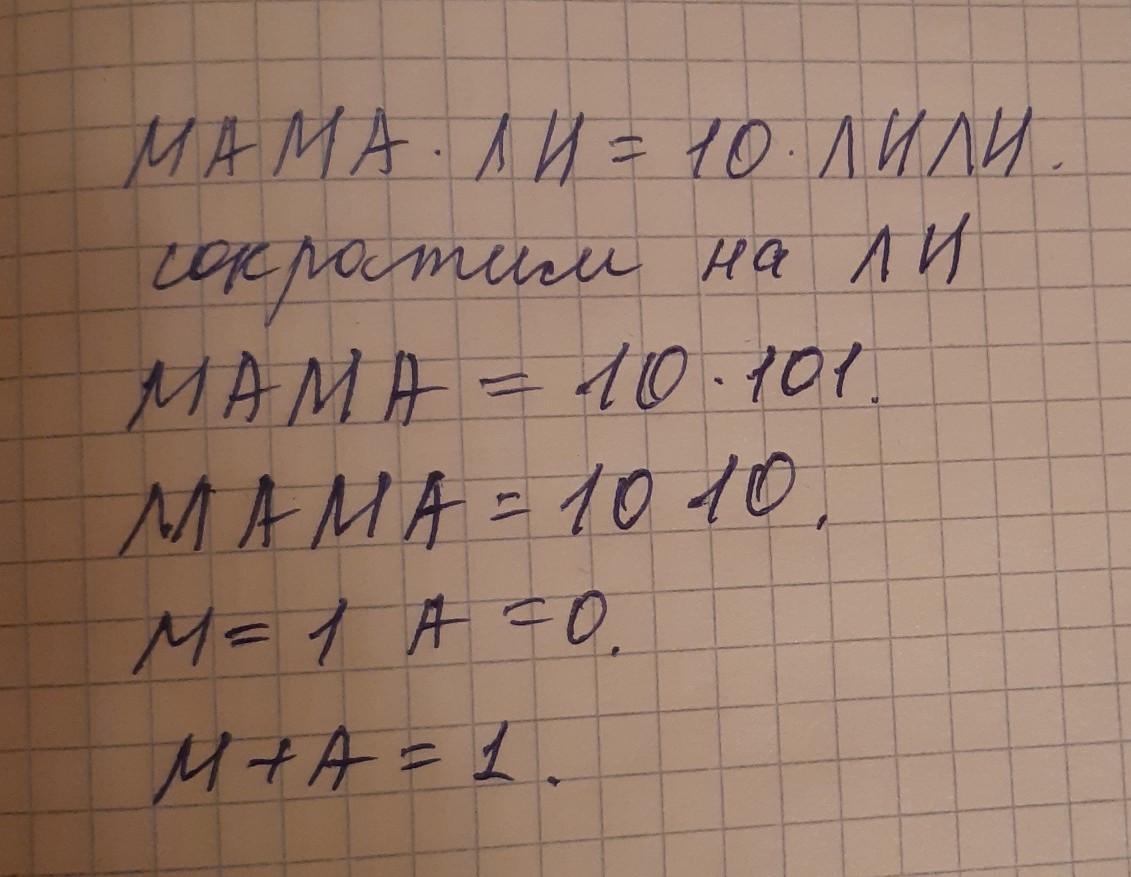 МАМА · ЛИ = 10 · ЛИЛИ.
сократим на ЛИ
МАМА = 10 · 101.
МАМА = 1010.
М = 1 А = 0.
М + А = 1.